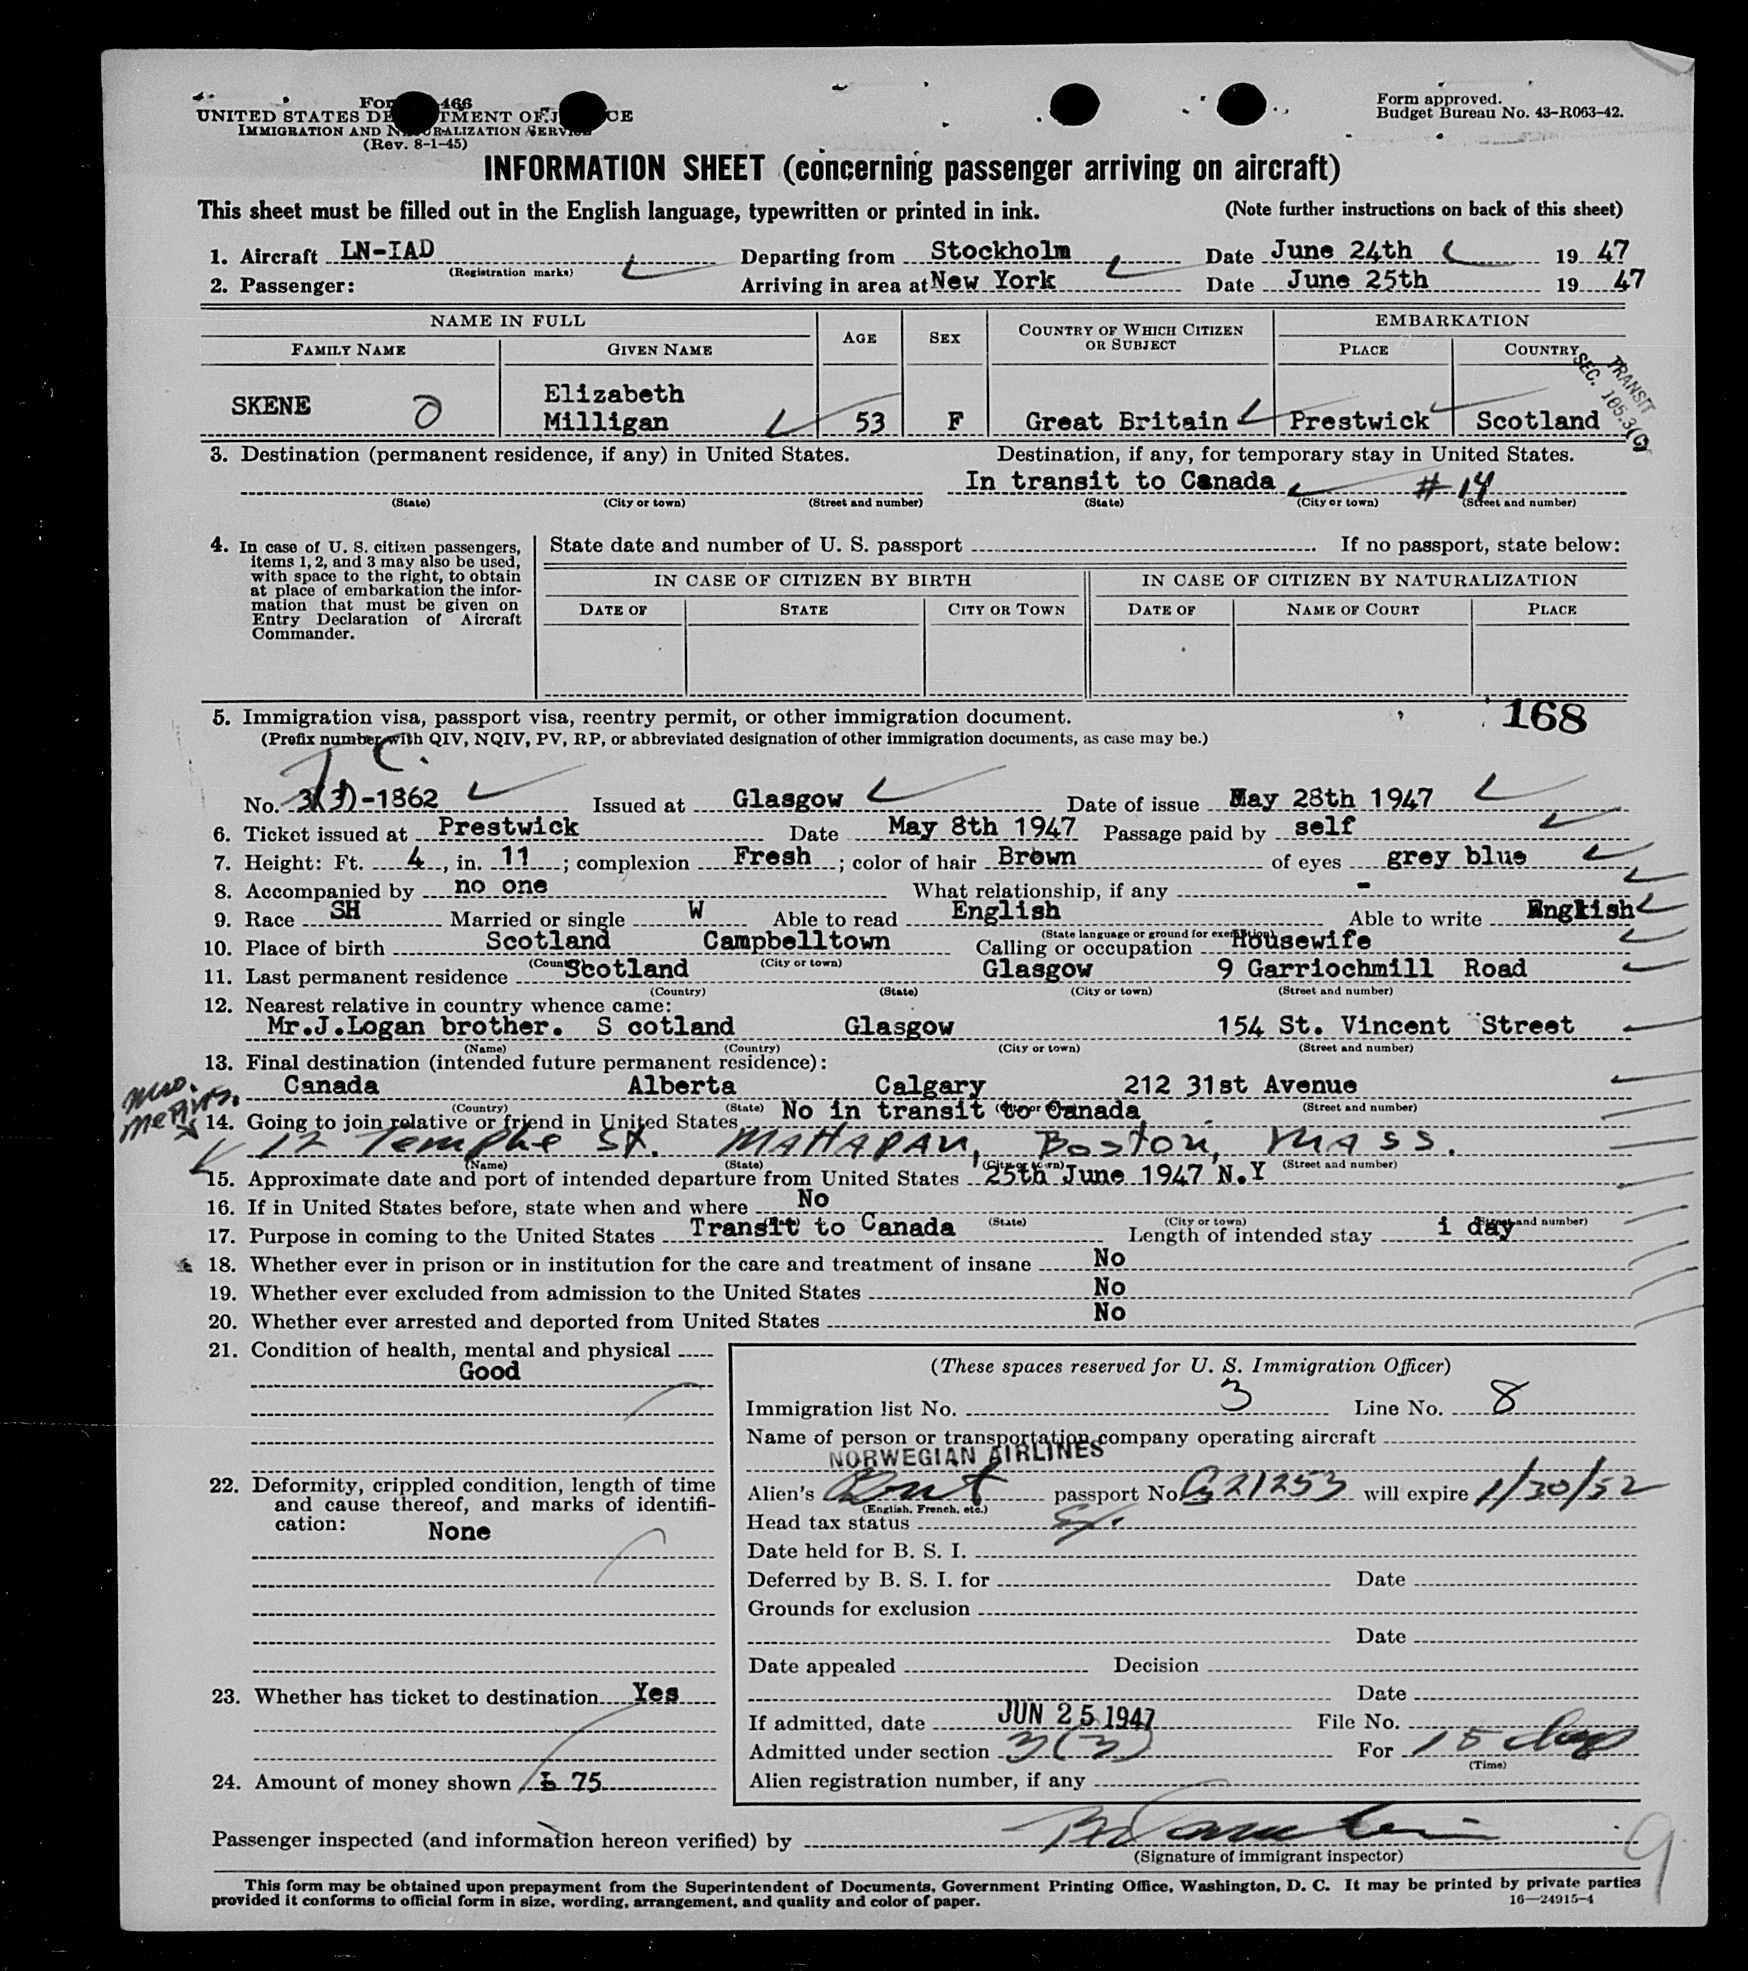 Form 466
UNITED STATES DE TMENT OF J CE
IMMIGRATION AND N URALIZATION SERVICE
(Rev. 8-1-45)
Form approved.
Budget Bureau No. 43-R063-42.
INFORMATION SHEET (concerning passenger arriving on aircraft)
This sheet must be filled out in the English language, typewritten or printed in ink. (Note further instructions on back of this sheet)
1. Aircraft LN-IAD Departing from Stockholm Date June 24th 19 47
(Registration marks)
2. Passenger: Arriving in area at New York Date June 25th 19 47
NAME IN FULL AGE SEX COUNTRY OF WHICH CITIZEN OR SUBJECT EMBARKATION
FAMILY NAME GIVEN NAME PLACE COUNTRY
TRANSIT
SEC. 105.3(C)
SKENE O Elizabeth
Milligan 53 F Great Britain Prestwick Scotland
3. Destination (permanent residence, if any) in United States. Destination, if any, for temporary stay in United States.
In transit to Canada # 14
(State) (City or town) (Street and number) (State) (City or town) (Street and number)
4. In case of U. S. citizen passengers, items 1, 2, and 3 may also be used, with space to the right, to obtain at place of embarkation the information that must be given on Entry Declaration of Aircraft Commander.
State date and number of U. S. passport If no passport, state below:
IN CASE OF CITIZEN BY BIRTH IN CASE OF CITIZEN BY NATURALIZATION
DATE OF STATE CITY OR TOWN DATE OF NAME OF COURT PLACE
5. Immigration visa, passport visa, reentry permit, or other immigration document. 168
(Prefix number with QIV, NQIV, PV, RP, or abbreviated designation of other immigration documents, as case may be.)
T.C.
No. 3(3)-1862 Issued at Glasgow Date of issue May 28th 1947
6. Ticket issued at Prestwick Date May 8th 1947 Passage paid by self
7. Height: Ft. 4, in. 11; complexion Fresh; color of hair Brown of eyes grey blue
8. Accompanied by no one What relationship, if any -
9. Race SH Married or single W Able to read English Able to write English
(State language or ground for exemption)
10. Place of birth Scotland Campbelltown Calling or occupation Housewife
(Country) (City or town)
11. Last permanent residence Scotland Glasgow 9 Garriochmill Road
(Country) (State) (City or town) (Street and number)
12. Nearest relative in country whence came:
Mr.J.Logan brother. S cotland Glasgow 154 St. Vincent Street
(Name) (Country) (City or town) (Street and number)
13. Final destination (intended future permanent residence):
Canada Alberta Calgary 212 31st Avenue
(Country) (State) (City or town) (Street and number)
14. Going to join relative or friend in United States No in transit to Canada
12 St. MATTAPAN, Boston, MASS.
(Name) (State) (City or town) (Street and number)
15. Approximate date and port of intended departure from United States 25th June 1947 N.Y
16. If in United States before, state when and where No
(State) (City or town) (Street and number)
17. Purpose in coming to the United States Transit to Canada Length of intended stay 1 day
18. Whether ever in prison or in institution for the care and treatment of insane No
19. Whether ever excluded from admission to the United States No
20. Whether ever arrested and deported from United States No
21. Condition of health, mental and physical
Good
22. Deformity, crippled condition, length of time and cause thereof, and marks of identification:
None
23. Whether has ticket to destination Yes
24. Amount of money shown £ 75
(These spaces reserved for U. S. Immigration Officer)
Immigration list No. 3 Line No. 8
Name of person or transportation company operating aircraft
NORWEGIAN AIRLINES
Alien's Brit passport No. G21253 will expire 1/30/52
(English, French, etc.)
Head tax status
Date held for B. S. I.
Deferred by B. S. I. for Date
Grounds for exclusion
Date
Date appealed Decision
Date
If admitted, date JUN 25 1947 File No.
Admitted under section 3(3) For 15 days
(Time)
Alien registration number, if any
Passenger inspected (and information hereon verified) by
(Signature of immigrant inspector)
9
This form may be obtained upon prepayment from the Superintendent of Documents, Government Printing Office, Washington, D. C. It may be printed by private parties
provided it conforms to official form in size, wording, arrangement, and quality and color of paper. 16—24915-4